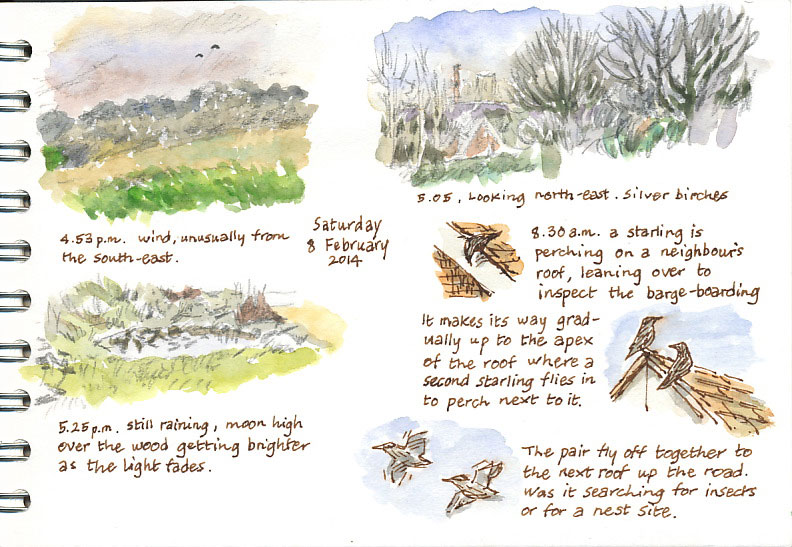 4.53 p.m. wind, unusually from
the south-east.
Saturday
8 February
2014
5.25 p.m. still raining, moon high
over the wood getting brighter
as the light fades.
5.05, Looking north-east. Silver birches
8.30 a.m. a starling is
perching on a neighbour's
roof, leaning over to
inspect the barge-boarding
It makes its way grad-
ually up to the apex
of the roof where a
second starling flies in
to perch next to it.
The pair fly off together to
the next roof up the road.
Was it searching for insects
or for a nest site.